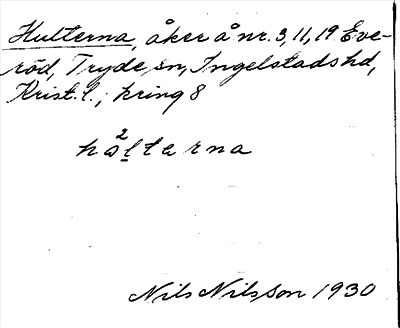 Hulterna, åker å nr. 3, 11, 19 Eve-
röd, Tryde sn, Ingelstads hd,
Krist. l.; kring 8
2
halterna
Nils Nilsson 1930